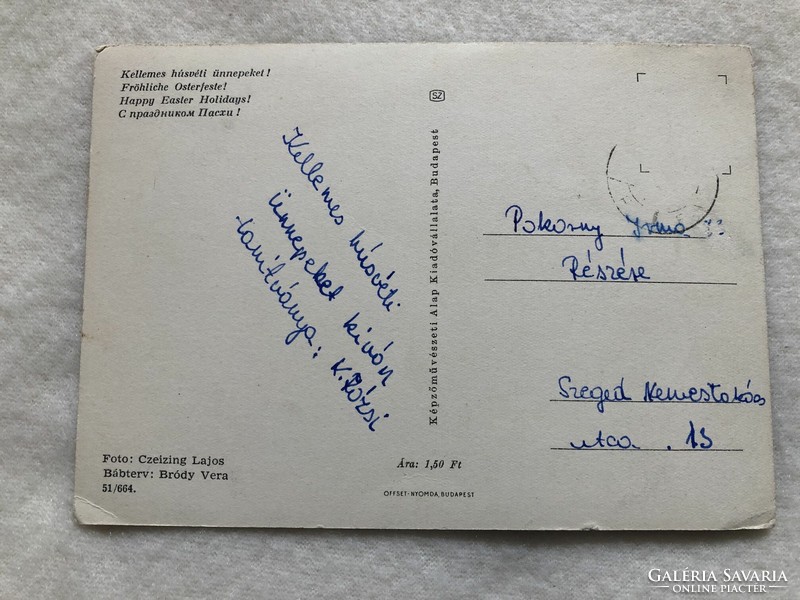 Kellemes húsvéti ünnepeket!
Fröhliche Osterfeste!
Happy Easter Holidays!
С праздником Пасхи!
Kellemes húsvéti
ünnepeket kíván
tanítványa: K. Rózsi
Foto: Czeizing Lajos
Bábterv: Bródy Vera
51/664.
Ára: 1,50 Ft
OFFSET-NYOMDA, BUDAPEST
SZ
Képzőművészeti Alap Kiadóvállalata, Budapest
Pokorny Irma
Részére
Szeged Nemestakács
utca . 13
GALÉRIA SAVARIA
ONLINE PIACTÉR